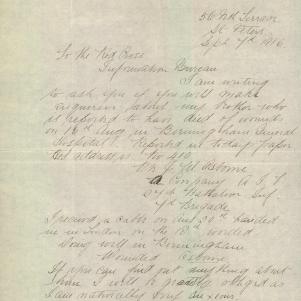 St. Peters
Sept 7th 1916.
To the Red Cross
Information Bureau
I am writing
to ask you if you will make
enquiries about my brother who
is reported to have died of wounds
on 16th Aug in Birmingham General
Hospital. Reported in today paper
No 410
Osborne
a Company A.I.F.
Battalion Inf
Brigade
I received a cable on Aug 30th handed
in in London on the 18th worded
Doing well in Birmingham
Wounded Osborne
If you can find out anything about
him I will be greatly obliged as
I am naturally very anxious